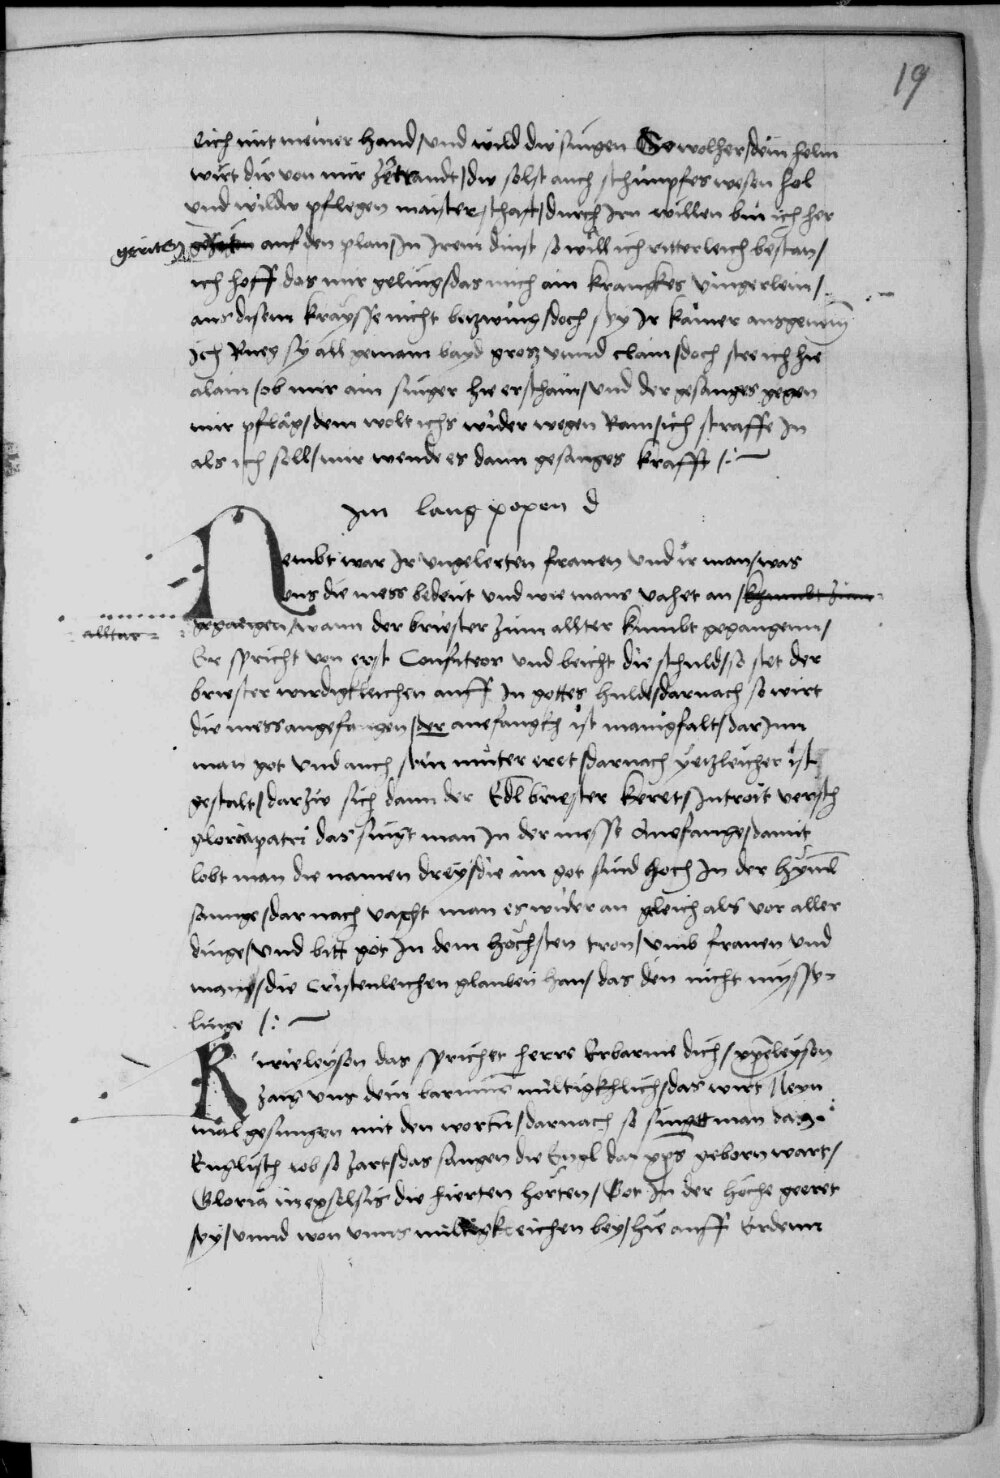 19
lich mit meiner hand / vnd wild du singen So wol her / dein helm
wirt dir von mir zetrandt / du solst auch schimpfes wesen hol
vnd wilder pflegen maisterschafft / durch Irn willen bin ich her
geriten auf den plan / In Irem dinst so will ich ritterleich bestan /
ich hoff das mir geling / das mich ain kranckes vingerlein /
aus disem kraysse nicht bezwing / doch sey Ir kainer ausgenom̄
Ich Rueg sy all gemain bayd grosz vnnd clain / doch stee ich hie
alain / ob mir ain singer hie erschain / vnd der gesanges gegen
mir pfläg / dem wolt ichs wider wegen kain / ich straffe In
als ich soll / mir wende es dann gesanges krafft /:~
Im lang popon d
Nembt war Ir vngelerten frauen vnd ir man / was
vns die mess bedeut vnd wie mans vahet an / khumbt zum
alltar
gegangen / wann der briester zum allter kumbt gegangenn /
Er spricht von erst Confiteor vnd beicht die schuld / so stet der
briester wirdigkleichen auff In gottes hulde / darnach so wirt
die mess angefangen / der anefangkh ist manigfalt / dar Inn
man got vnd auch sein muter eret / darnach yetzleicher ist
gestalt / darzue sich dann der Edl briester keret / Introit versch
gloria patri das singt man In der messe Anefange / damit
lobt man die namen drey / die ain got sind hoch In der hyml
saunge / dar nach vacht man es wider an gleich als vor aller
dinge / vnd bitt got In dem höchsten tron / vmb frauen vnd
man / die Cristenleichen glauben han / das den nicht mysse-
linge /:~
Kirieleyson das sprichet herre Erbarme dich / xp̄eleyson
zaig vns dein barmūg miltigkhlich / das wirt Neyn
mal gesungen mit den wortn̄ / darnach so singt man das
Englisch lob so zart / das sungen die Engl da xp̄s geborn wart /
Gloria in exselsis die hierten horten / Got In der höche geeret
sey / vnnd won vnns miltigkleichen bey / hie auff Erdenn